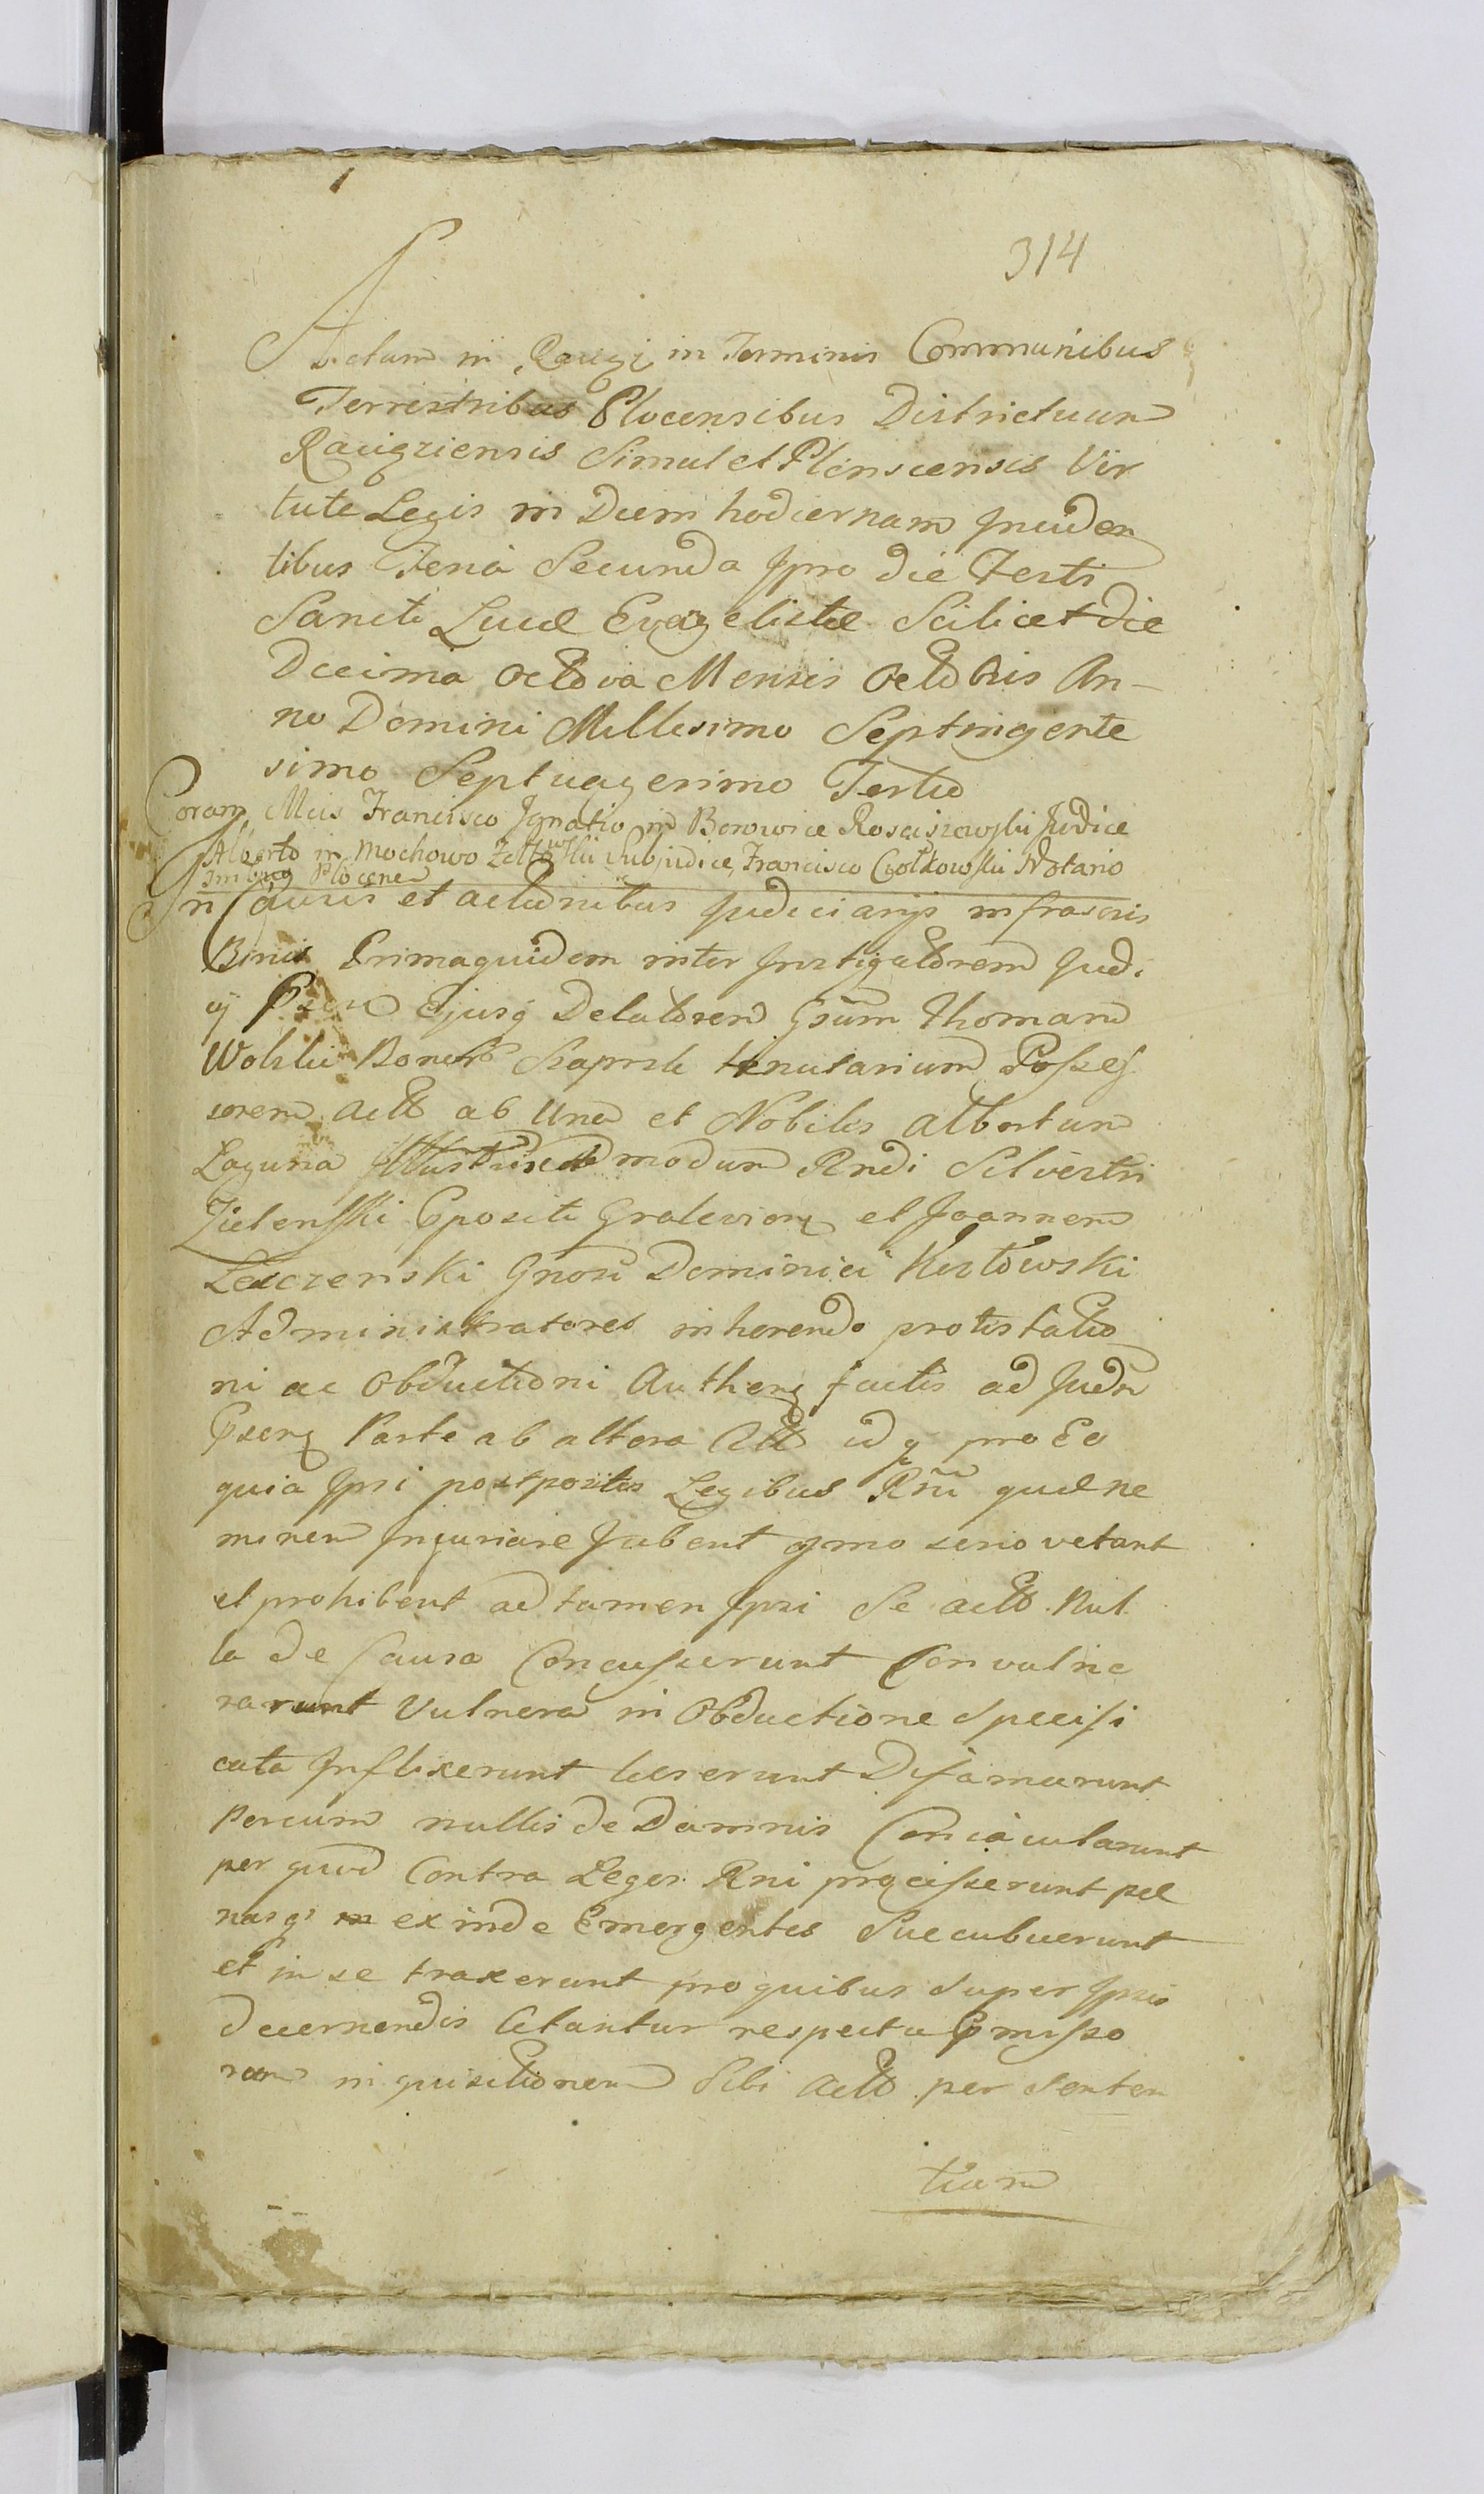 314
Actum in Raciąż in Terminis Communibus
Terrestribus Plocensibus Districtuum
Raciąziensis Simul et Plonscensis Vir
tute Legis in Diem hodiernam Inciden
tibus Feria Secunda Ipso die Festi
Sancti Lucæ Evagelistæ Scilicet die
Decima Octava Mensis Octobris An-
no Domini Millesimo Septingente
simo Septuagesimo Tertio
Coram Mcis Francisco Ignatio in Borowice Rosciszewski Judice
Alberto in Mochowo Zółtowski Subjudice, Francisco Ciołkowski Notario
Trribus Plocen
In Causis et actionibus Judiciarijs infrascris
Binis Primaquidem inter Instigatorem Judi
cij Psen Ejusq Delatorem Gsum Thomam
Wolski Bonor Szapsk tenutarium Posses
sorem Act ab Una et Nobiles Albertum
Laguna Illustris Admodum Rndi Silvestri
Zielenski Cpositi Gralevien et Joannem
Leszczenski Gnosi Dominici Kostowski
Administratores inherendo protestatio
ni ac Obductioni Authen factis ad Judm
Psens Parte ab altera Citt id q pro Eo
quia Ipsi postpositis Legibus Rni quæ ne
minem Injuriare Jubent qmo serio vetant
et prohibent ad tamen Ipsi Se Act Nul
la de Causa Concusserunt Convulne
rarunt Vulnera in Obductione Specifi
cata Inflixerunt læserunt Difamarunt
Percum nullis de Damnis Conciacularunt
per quod Contra Leges Rni præcisserunt pæ
nasqe in exinde Emergentes Succubuerunt
et in se traxerunt pro quibus super Ipsis
decernendis Citantur respectu Pmisso
rum inquisitionem Sibi Act per Senten
tiam